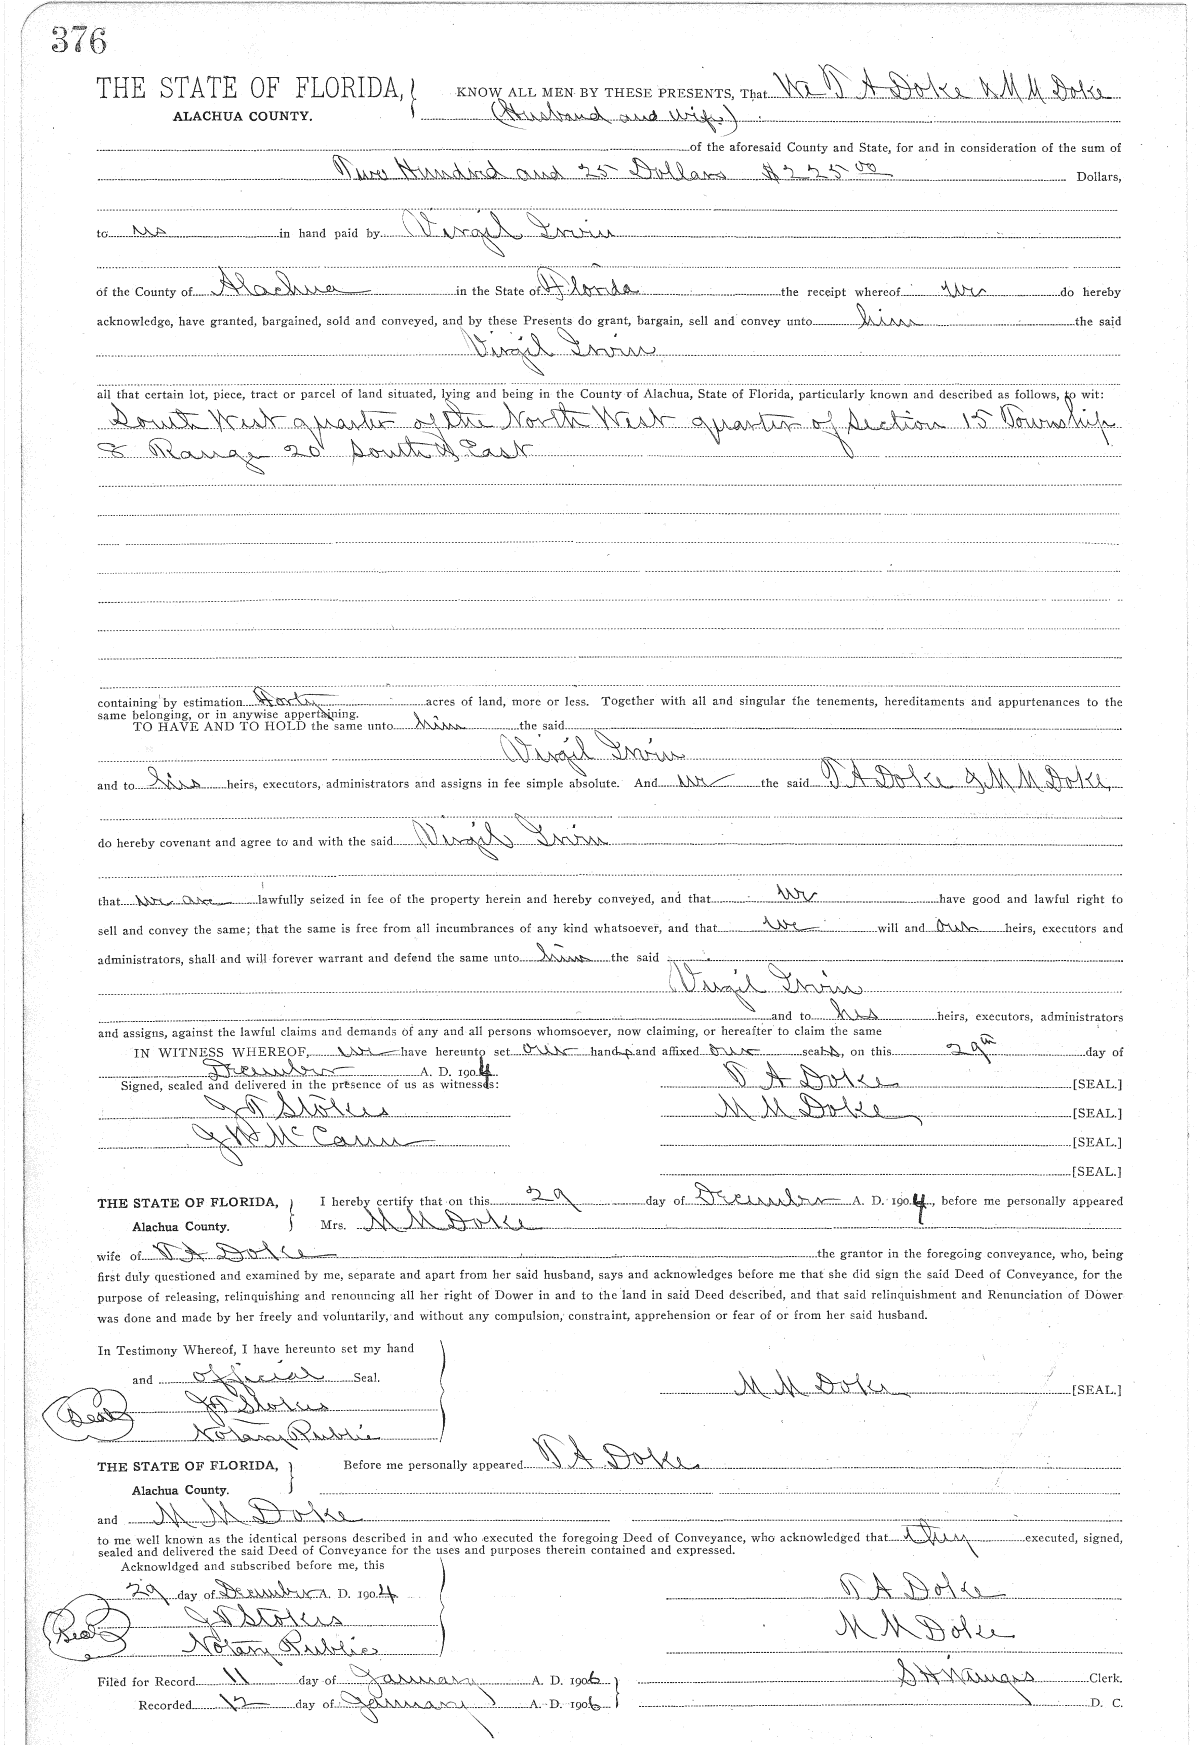 376
THE STATE OF FLORIDA, KNOW ALL MEN BY THESE PRESENTS, That We T A Doke & M M Doke
ALACHUA COUNTY. (Husband and wife)
of the aforesaid County and State, for and in consideration of the sum of
Two Hundred and 25 Dollars $225 00 Dollars,
to us in hand paid by Virgil Irvin
of the County of Alachua in the State of Florida the receipt whereof we do hereby
acknowledge, have granted, bargained, sold and conveyed, and by these Presents do grant, bargain, sell and convey unto him the said
Virgil Irvin
all that certain lot, piece, tract or parcel of land situated, lying and being in the County of Alachua, State of Florida, particularly known and described as follows, to wit:
South West quarter of the North West quarter of Section 15 Township
8 Range 20 South & East
containing by estimation Forty acres of land, more or less. Together with all and singular the tenements, hereditaments and appurtenances to the
same belonging, or in anywise appertaining.
TO HAVE AND TO HOLD the same unto him the said
Virgil Irvin
and to his heirs, executors, administrators and assigns in fee simple absolute. And we the said T A Doke & M M Doke
do hereby covenant and agree to and with the said Virgil Irvin
that we are lawfully seized in fee of the property herein and hereby conveyed, and that we have good and lawful right to
sell and convey the same; that the same is free from all incumbrances of any kind whatsoever, and that we will and our heirs, executors and
administrators, shall and will forever warrant and defend the same unto him the said
Virgil Irvin
and to his heirs, executors, administrators
and assigns, against the lawful claims and demands of any and all persons whomsoever, now claiming, or hereafter to claim the same
IN WITNESS WHEREOF, we have hereunto set our hands and affixed our seals, on this 29th day of
December A. D. 1904
Signed, sealed and delivered in the presence of us as witnesses: T A Doke [SEAL.]
J T Stokes M M Doke [SEAL.]
J W McCann [SEAL.]
[SEAL.]
THE STATE OF FLORIDA, I hereby certify that on this 29 day of December A. D. 1904, before me personally appeared
Alachua County. Mrs. M M Doke
wife of T A Doke the grantor in the foregoing conveyance, who, being
first duly questioned and examined by me, separate and apart from her said husband, says and acknowledges before me that she did sign the said Deed of Conveyance, for the
purpose of releasing, relinquishing and renouncing all her right of Dower in and to the land in said Deed described, and that said relinquishment and Renunciation of Dower
was done and made by her freely and voluntarily, and without any compulsion, constraint, apprehension or fear of or from her said husband.
In Testimony Whereof, I have hereunto set my hand
and official Seal. M M Doke [SEAL.]
Seal J T Stokes
Notary Public
THE STATE OF FLORIDA, Before me personally appeared T A Doke
Alachua County.
and M M Doke
to me well known as the identical persons described in and who executed the foregoing Deed of Conveyance, who acknowledged that they executed, signed,
sealed and delivered the said Deed of Conveyance for the uses and purposes therein contained and expressed.
Acknowldged and subscribed before me, this
29 day of December A. D. 1904 T A Doke
Seal J T Stokes M M Doke
Notary Public
Filed for Record 11 day of January A. D. 1906 S H Wienges Clerk.
Recorded 12 day of January A. D. 1906 D. C.